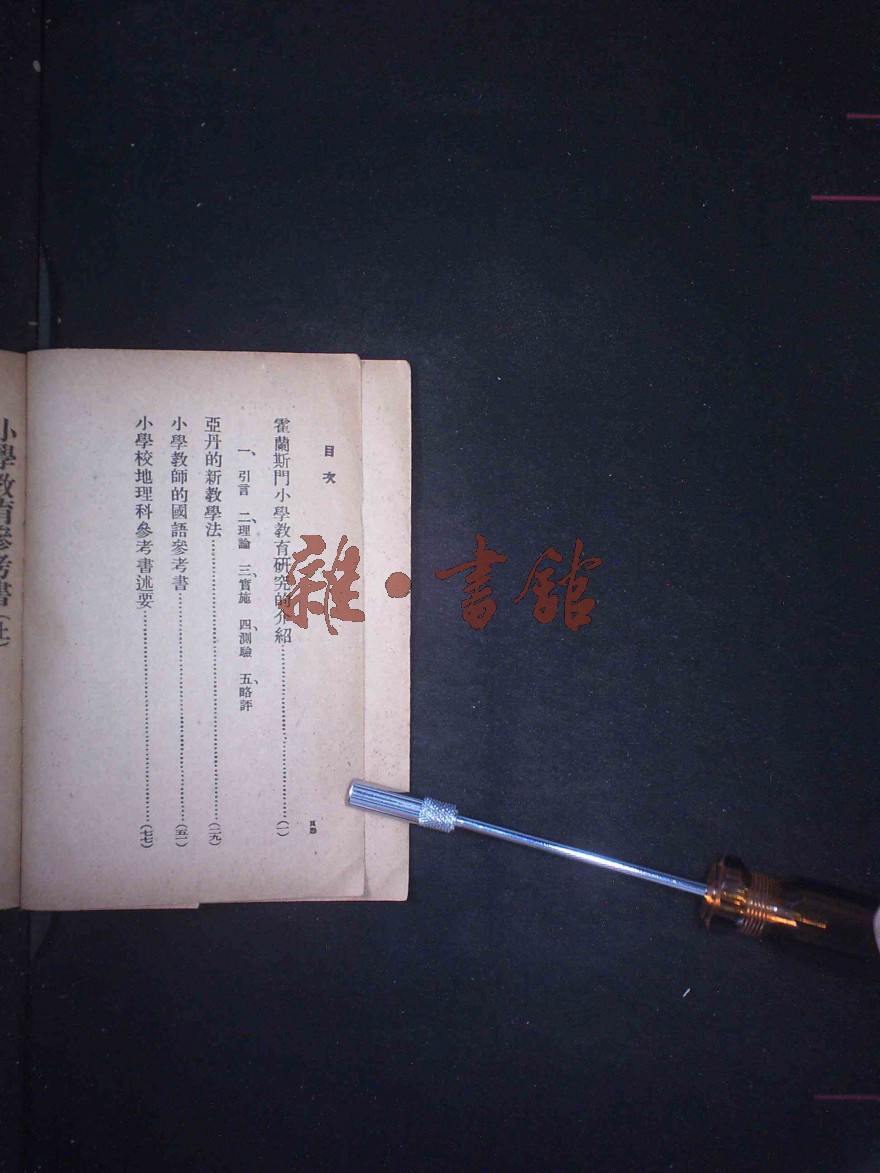 目次
頁數
霍蘭斯門小學教育研究的介紹……(一)
一、引言 二、理論 三、實施 四、測驗 五、略評
亞丹的新教學法……(二九)
小學教師的國語參考書……(五一)
小學校地理科參考書述要……(七七)
小學教育參考書(上)
雜·書館